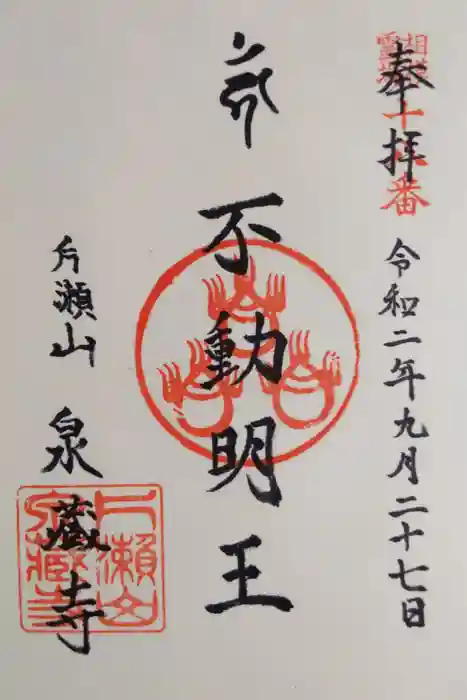 奉拝
令和二年九月二十七日
不動明王
片瀬山
泉蔵寺
片瀬山
泉蔵寺